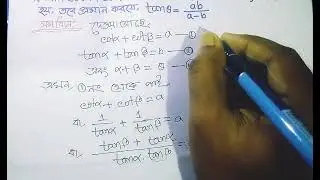 হয়, তবে প্রমাণ করযে, tanθ = ab/a-b
সমাধান: দেওয়া আছে,
cotα + cotβ = a — ①
tanα + tanβ = b — ②
এবং α + β = θ —
এখন ①নং থেকে পাই
cotα + cotβ = a
বা, 1/tanα + 1/tanβ = a
বা, tanβ + tanα/tanα. tanβ =